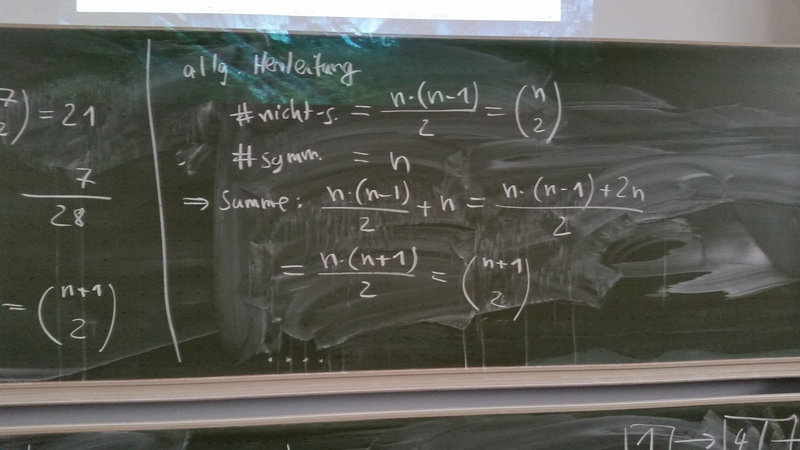 7
2) = 21
7
28
= (n+1
2)
allg. Herleitung
#nicht-s. = n·(n-1)/2 = (n
2)
#symm. = n
⇒ Summe: n·(n-1)/2 + n = n·(n-1)+2n/2
= n·(n+1)/2 = (n+1
2)
1 → 4 7